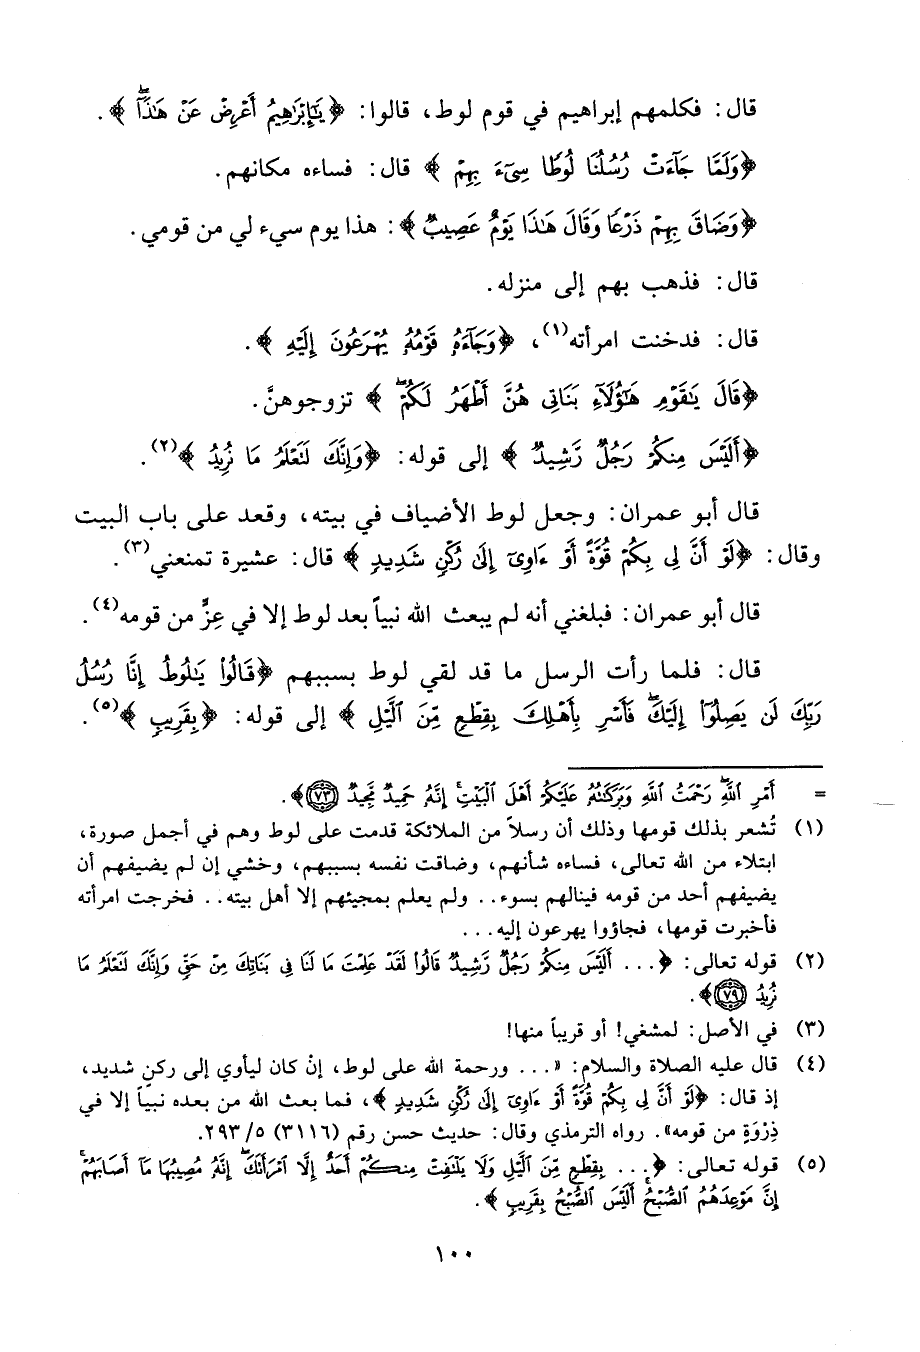 قال: فكلمهم إبراهيم في قوم لوط، قالوا: ﴿يَٰٓإِبْرَٰهِيمُ أَعْرِضْ عَنْ هَٰذَآ﴾.
﴿وَلَمَّا جَآءَتْ رُسُلُنَا لُوطًا سِيٓءَ بِهِمْ﴾ قال: فساءه مكانهم.
﴿وَضَاقَ بِهِمْ ذَرْعًا وَقَالَ هَٰذَا يَوْمٌ عَصِيبٌ﴾: هذا يوم سيء لي من قومي.
قال: فذهب بهم إلى منزله.
قال: فدخنت امرأته(١)، ﴿وَجَآءَهُۥ قَوْمُهُۥ يُهْرَعُونَ إِلَيْهِ﴾.
﴿قَالَ يَٰقَوْمِ هَٰٓؤُلَآءِ بَنَاتِى هُنَّ أَطْهَرُ لَكُمْ﴾ تزوجوهنَّ.
﴿أَلَيْسَ مِنكُمْ رَجُلٌ رَّشِيدٌ﴾ إلى قوله: ﴿وَإِنَّكَ لَتَعْلَمُ مَا نُرِيدُ﴾(٢).
قال أبو عمران: وجعل لوط الأضياف في بيته، وقعد على باب البيت
وقال: ﴿لَوْ أَنَّ لِى بِكُمْ قُوَّةً أَوْ ءَاوِىٓ إِلَىٰ رُكْنٍ شَدِيدٍ﴾ قال: عشيرة تمنعني(٣).
قال أبو عمران: فبلغني أنه لم يبعث الله نبياً بعد لوط إلا في عِزٍّ من قومه(٤).
قال: فلما رأت الرسل ما قد لقي لوط بسببهم ﴿قَالُوا۟ يَٰلُوطُ إِنَّا رُسُلُ
رَبِّكَ لَن يَصِلُوٓا۟ إِلَيْكَ فَأَسْرِ بِأَهْلِكَ بِقِطْعٍ مِّنَ ٱلَّيْلِ﴾ إلى قوله: ﴿بِقَرِيبٍ﴾(٥).
= أَمْرِ ٱللَّهِ رَحْمَتُ ٱللَّهِ وَبَرَكَٰتُهُۥ عَلَيْكُمْ أَهْلَ ٱلْبَيْتِ إِنَّهُۥ حَمِيدٌ مَّجِيدٌ (٧٣)﴾.
(١) تُشعر بذلك قومها وذلك أن رسلاً من الملائكة قدمت على لوط وهم في أجمل صورة،
ابتلاء من الله تعالى، فساءه شأنهم، وضاقت نفسه بسببهم، وخشي إن لم يضيفهم أن
يضيفهم أحد من قومه فينالهم بسوء.. ولم يعلم بمجيئهم إلا أهل بيته.. فخرجت امرأته
فأخبرت قومها، فجاؤوا يهرعون إليه...
(٢) قوله تعالى: ﴿... أَلَيْسَ مِنكُمْ رَجُلٌ رَّشِيدٌ قَالُوا۟ لَقَدْ عَلِمْتَ مَا لَنَا فِى بَنَاتِكَ مِنْ حَقٍّ وَإِنَّكَ لَتَعْلَمُ مَا
نُرِيدُ (٧٩)﴾.
(٣) في الأصل: لمشغي! أو قريباً منها!
(٤) قال عليه الصلاة والسلام: «... ورحمة الله على لوط، إنْ كان ليأوي إلى ركنٍ شديد،
إذ قال: ﴿لَوْ أَنَّ لِى بِكُمْ قُوَّةً أَوْ ءَاوِىٓ إِلَىٰ رُكْنٍ شَدِيدٍ﴾، فما بعث الله من بعده نبيّاً إلا في
ذِرْوَةٍ من قومه». رواه الترمذي وقال: حديث حسن رقم (٣١١٦) ٢٩٣/٥.
(٥) قوله تعالى: ﴿... بِقِطْعٍ مِّنَ ٱلَّيْلِ وَلَا يَلْتَفِتْ مِنكُمْ أَحَدٌ إِلَّا ٱمْرَأَتَكَ إِنَّهُۥ مُصِيبُهَا مَآ أَصَابَهُمْ
إِنَّ مَوْعِدَهُمُ ٱلصُّبْحُ أَلَيْسَ ٱلصُّبْحُ بِقَرِيبٍ﴾.
١٠٠